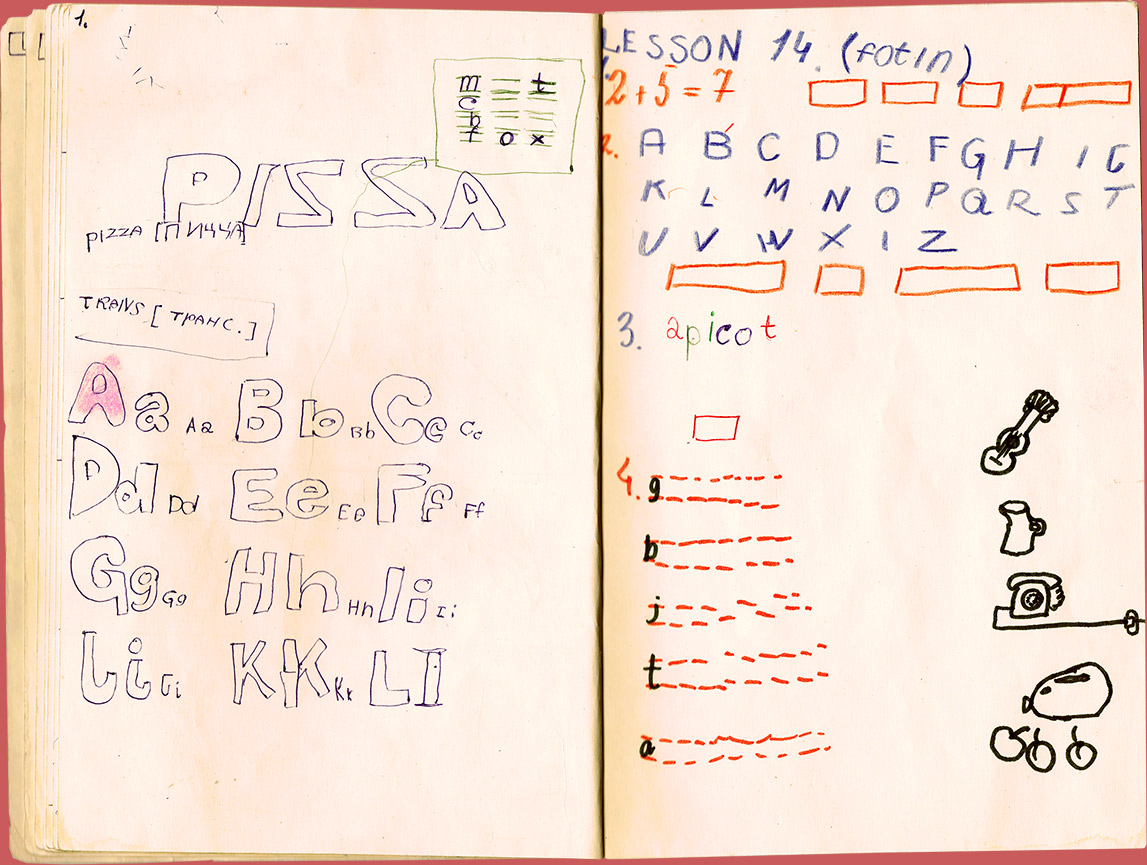 1.
m t
c
h
f o x
PISSA
PIZZA [ПИЦЦА]
TRANS [ТРАНС.]
A a Aa B b Bb C c Cc
D d Dd E e Ee F f Ff
G g Gg H h Hh I i Ii
K K Kk L I
LESSON 14. (fotin)
2+5=7
2. A B C D E F G H I G
K L M N O P Q R S T
U V W X I Z
3. apicot
4. g
b
j
t
a